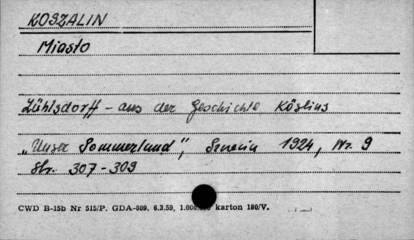 KOSZALIN
Miasto
Lühlsdorff - aus der Geschichte Köslins
„Unser Pommerland", 1924, Nr. 9
Str. 307-309
CWD B-15b Nr 515/P. GDA-809, 6.3.59, karton 180/V.